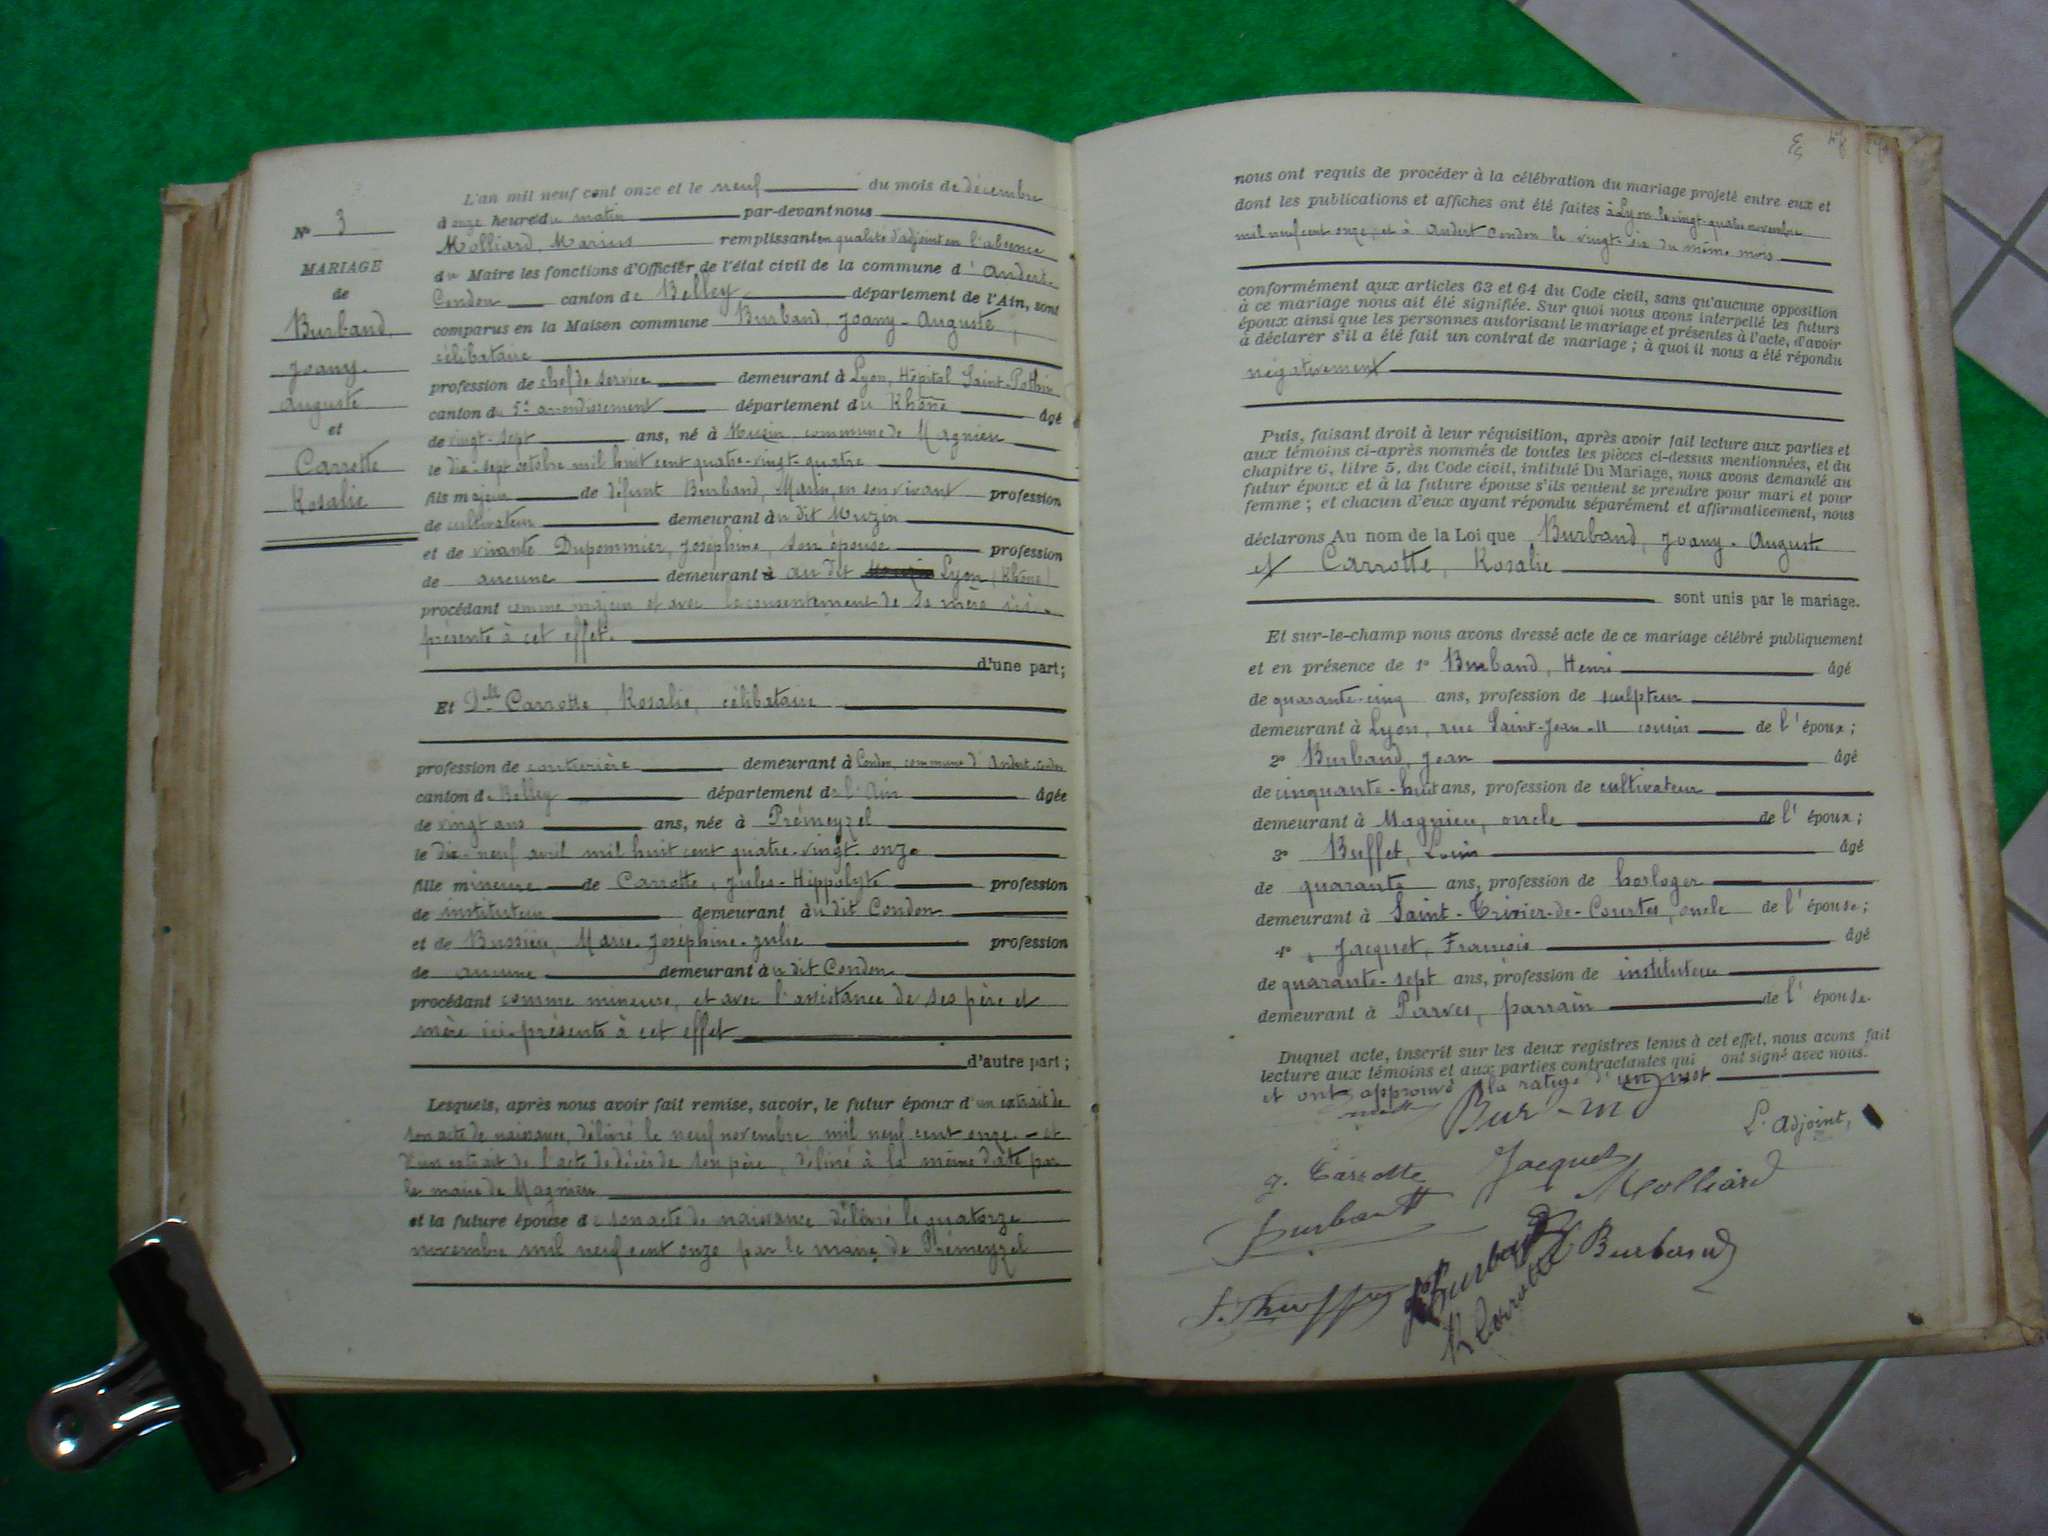 Nº 3
MARIAGE
de
Burband
Joany
Auguste
et
Carrotte
Rosalie
L'an mil neuf cent onze et le neuf du mois de décembre
à onze heures du matin par-devant nous
Molliard, Marius remplissant en qualité d'adjoint en l'absence
du Maire les fonctions d'Officier de l'état civil de la commune d'Andert-
Condon canton de Belley département de l'Ain, sont
comparus en la Maison commune Burband, Joany-Auguste,
célibataire
profession de chef de service demeurant à Lyon, Hôpital Saint-Pothin
canton du 5e arrondissement département du Rhône âgé
de vingt-sept ans, né à Muzin, commune de Magnieu
le dix-sept octobre mil huit cent quatre-vingt-quatre
fils majeur de défunt Burband, Marin, en son vivant profession
de cultivateur demeurant au dit Muzin
et de vivante Dupommier, Joséphine, son épouse profession
de aucune demeurant à au dit Lyon (Rhône)
procédant comme majeur et avec le consentement de sa mère ici-
présente à cet effet.
d'une part;
Et Dlle Carrotte, Rosalie, célibataire
profession de couturière demeurant à Condon, commune d'Andert-Condon
canton de Belley département de l'Ain âgée
de vingt ans ans, née à Prémeyzel
le dix-neuf avril mil huit cent quatre-vingt-onze
fille mineure de Carrotte, Jules-Hippolyte profession
de instituteur demeurant au dit Condon
et de Bussieu, Marie-Joséphine-Julie profession
de aucune demeurant au dit Condon
procédant comme mineure, et avec l'assistance de ses père et
mère ici-présents à cet effet
d'autre part;
Lesquels, après nous avoir fait remise, savoir, le futur époux d'un extrait de
son acte de naissance, délivré le neuf novembre mil neuf cent onze - et
d'un extrait de l'acte de décès de son père, délivré à la même date par
le maire de Magnieu
et la future épouse de son acte de naissance délivré le quatorze
novembre mil neuf cent onze par le maire de Prémeyzel
nous ont requis de procéder à la célébration du mariage projeté entre eux et
dont les publications et affiches ont été faites à Lyon le vingt-quatre novembre
mil neuf cent onze, et à Andert Condon le vingt-six du même mois
conformément aux articles 63 et 64 du Code civil, sans qu'aucune opposition
à ce mariage nous ait été signifiée. Sur quoi nous avons interpellé les futurs
époux ainsi que les personnes autorisant le mariage et présentes à l'acte, d'avoir
à déclarer s'il a été fait un contrat de mariage; à quoi il nous a été répondu
négativement
Puis, faisant droit à leur réquisition, après avoir fait lecture aux parties et
aux témoins ci-après nommés de toutes les pièces ci-dessus mentionnées, et du
chapitre 6, litre 5, du Code civil, intitulé Du Mariage, nous avons demandé au
futur époux et à la future épouse s'ils veulent se prendre pour mari et pour
femme; et chacun d'eux ayant répondu séparément et affirmativement, nous
déclarons Au nom de la Loi que Burband, Joany-Auguste
et Carrotte, Rosalie
sont unis par le mariage.
Et sur-le-champ nous avons dressé acte de ce mariage célébré publiquement
et en présence de 1º Burband, Henri âgé
de quarante-cinq ans, profession de sculpteur
demeurant à Lyon, rue Saint-Jean-11 cousin de l'époux;
2º Burband, Jean âgé
de cinquante-huit ans, profession de cultivateur
demeurant à Magnieu, oncle de l'époux;
3º Buffet, Louis âgé
de quarante ans, profession de horloger
demeurant à Saint-Trivier-de-Courtes, oncle de l'épouse;
4º Jacquet, François âgé
de quarante-sept ans, profession de instituteur
demeurant à Parves, parrain de l'épouse.
Duquel acte, inscrit sur les deux registres tenus à cet effet, nous avons fait
lecture aux témoins et aux parties contractantes qui ont signé avec nous.
et ont approuvé la rature d'un mot
L'adjoint,
J. Carrotte
Jacquet
Molliard
Burband
Burband
R Carrotte
Burband